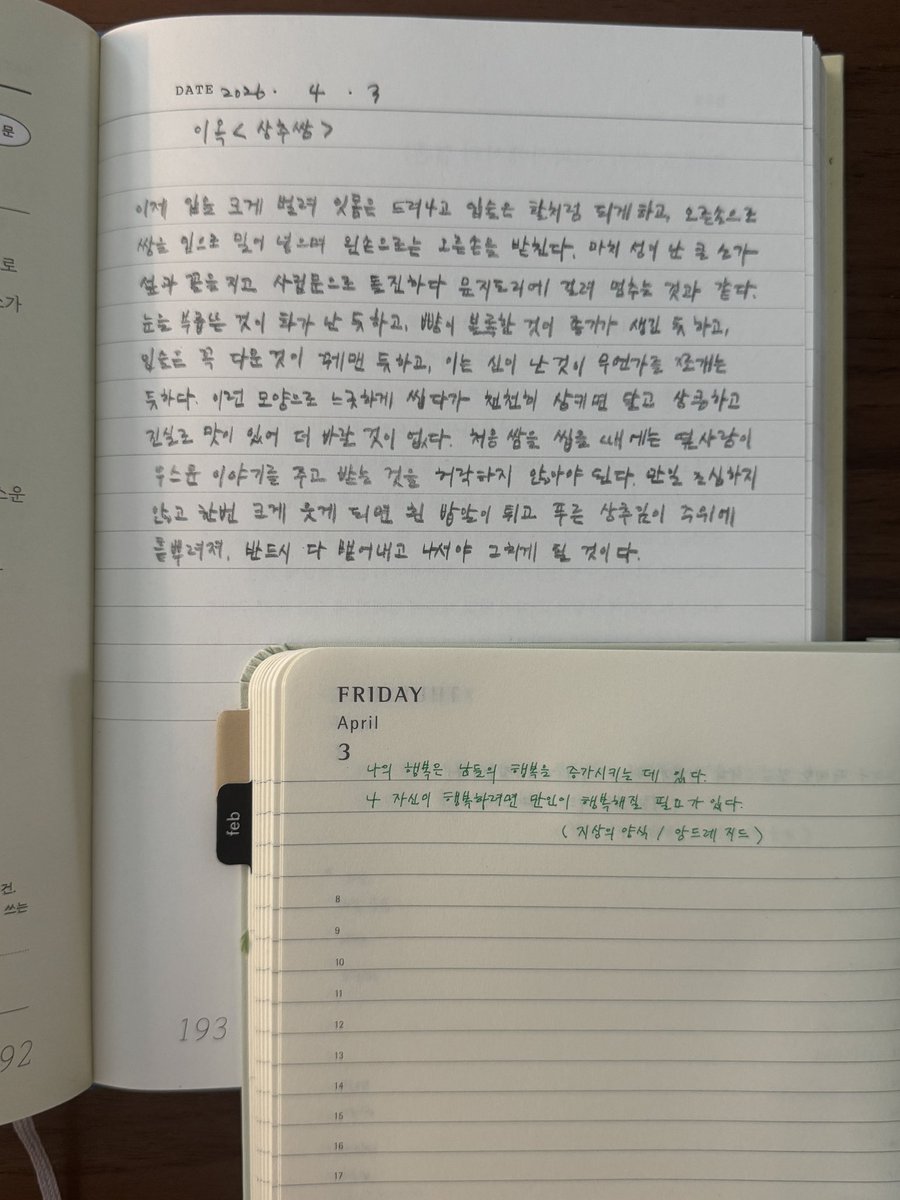 문
로
소가
스운
건.
쓰는
92
DATE 2026. 4. 3
이옥 < 상추쌈 >
이제 입을 크게 벌려 잇몸은 드러나고 입술은 활처럼 되게 하고, 오른손으로
쌈을 입으로 밀어 넣으며 왼손으로는 오른손을 받친다. 마치 성이 난 큰 소가
섶과 꼴을 지고 사립문으로 돌진하다 문지도리에 걸려 멈추는 것과 같다.
눈을 부릅뜬 것이 화가 난 듯하고, 뺨이 볼록한 것이 종기가 생긴 듯 하고,
입술은 꼭 다문 것이 꿰맨 듯하고, 이는 신이 난 것이 무언가를 쪼개는
듯하다. 이런 모양으로 느긋하게 씹다가 천천히 삼키면 달고 상큼하고
진실로 맛이 있어 더 바랄 것이 없다. 처음 쌈을 씹을 때에는 옆사람이
우스운 이야기를 주고 받는 것을 허락하지 않아야 된다. 만일 조심하지
않고 한번 크게 웃게 되면 흰 밥알이 튀고 푸른 상추잎이 주위에
흩뿌려져, 반드시 다 뱉어내고 나서야 그치게 될 것이다.
193
FRIDAY
April
3
나의 행복은 남들의 행복을 증가시키는 데 있다.
나 자신이 행복하려면 만인이 행복해질 필요가 있다.
( 지상의 양식 / 앙드레 지드 )
feb
8
9
10
11
12
13
14
15
16
17